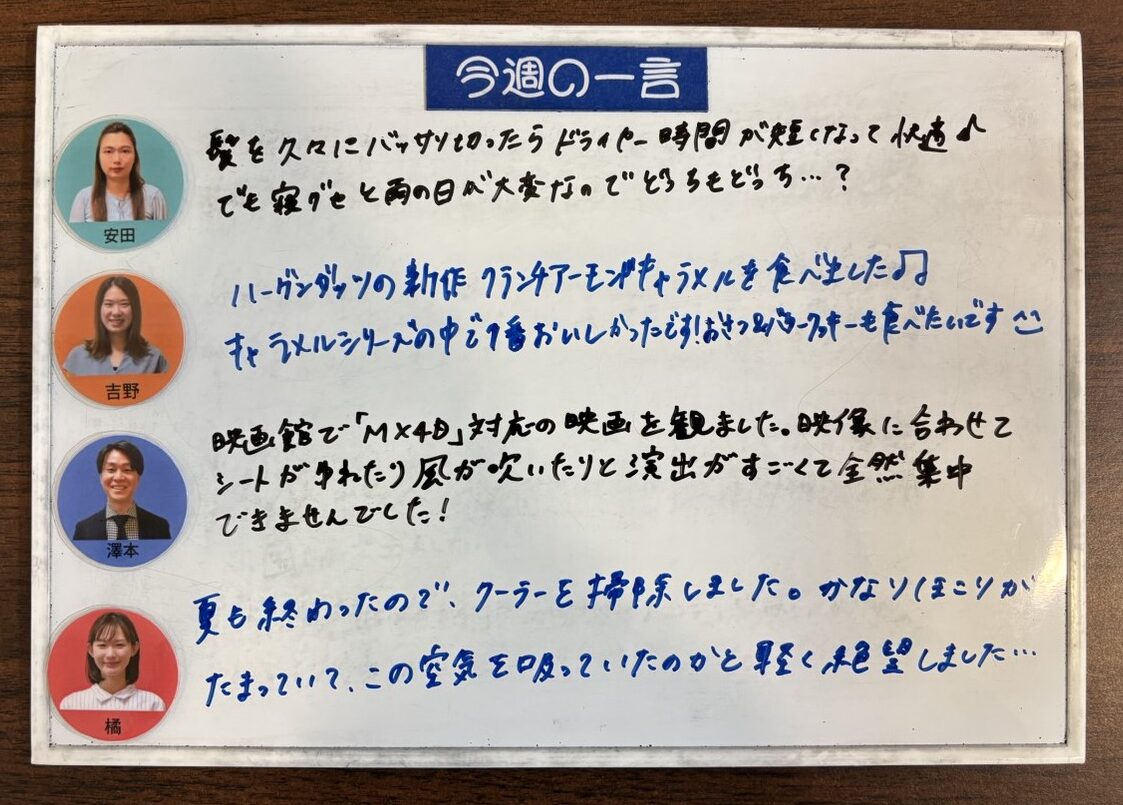 今週の一言
髪を久々にバッサリ切ったらドライヤー時間が短くなって快適♪
でも寝グセと雨の日が大変なのでどっちもどっち…?
安田
ハーゲンダッツの新作 クランチアーモンドキャラメルを食べました♫
キャラメルシリーズの中で1番おいしかったです!おさつ&バタークッキーも食べたいです^^
吉野
映画館で「MX4D」対応の映画を観ました。映像に合わせて
シートがゆれたり風が吹いたりと演出がすごくて全然集中
できませんでした!
澤本
夏も終わったので、クーラーを掃除しました。かなりほこりが
たまっていて、この空気を吸っていたのかと軽く絶望しました…
橘